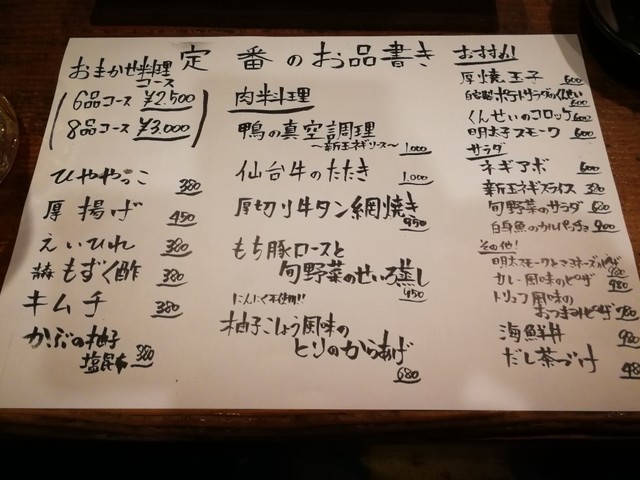 定番のお品書き
おまかせ料理
コース
6品コース ¥2,500
8品コース ¥3,000
ひややっこ 380
厚揚げ 450
えいひれ 380
もずく酢 380
キムチ 380
かぶの柚子
塩昆布 380
肉料理
鴨の真空調理
〜新玉ネギソース〜 1,000
仙台牛のたたき 1,000
厚切り牛タン網焼き
950
もち豚ロースと
旬野菜のせいろ蒸し
950
にんにく不使用!!
柚子こしょう風味の
とりのからあげ
680
おすすめ!
厚焼玉子 600
自家製ポテトサラダのくんせい
600
くんせいのコロッケ 600
明太子スモーク 600
サラダ
ネギアボ 600
新玉ネギスライス
旬野菜のサラダ
白身魚のカルパッチョ 900
その他!
カレー風味のピザ 980
トリュフ風味の
おつまみピザ 780
海鮮丼 980
だし茶づけ 48